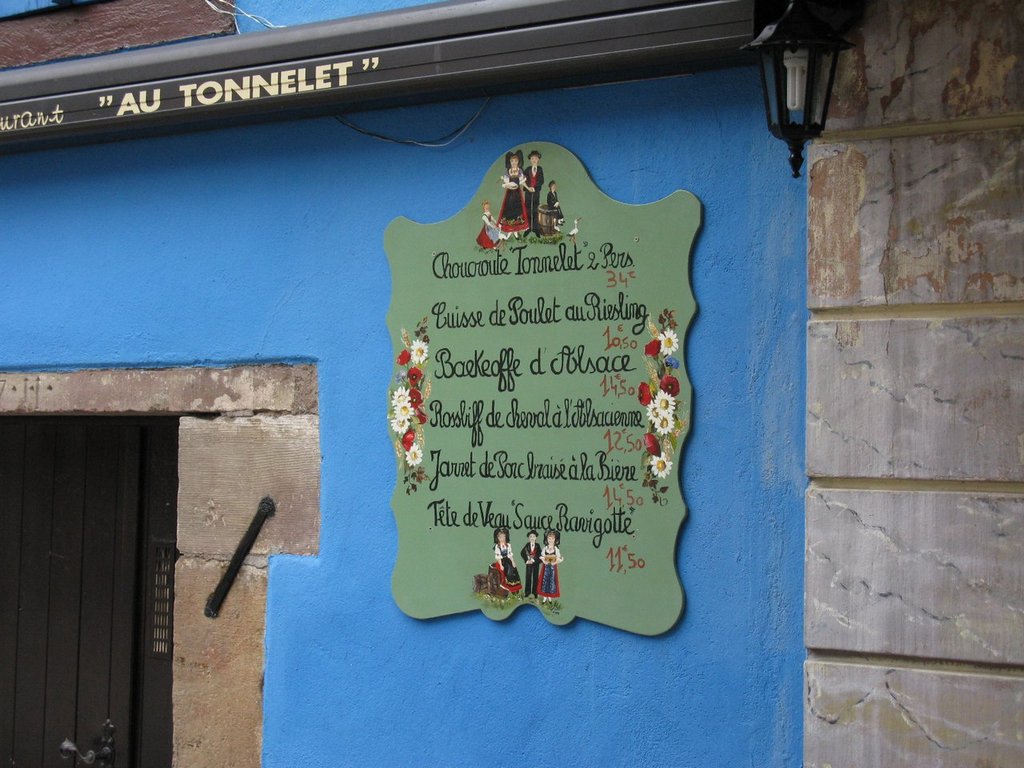 urant "AU TONNELET"
Choucroute "Tonnelet" 2 Pers
34€
Cuisse de Poulet au Riesling
10€50
Baekeoffe d'Alsace
14€50
Rossbiff de cheval à l'Alsacienne
12€50
Jarret de Porc braisé à la Bière
14€50
Tête de Veau "Sauce Ravigotte"
11€50